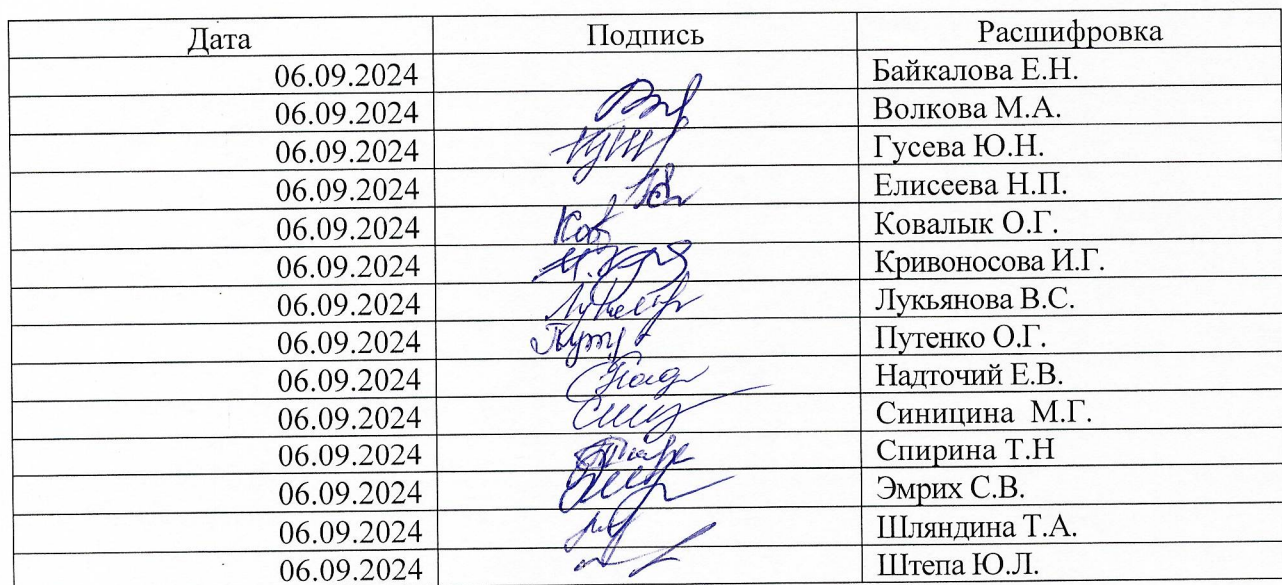 Дата Подпись Расшифровка
06.09.2024 Байкалова Е.Н.
06.09.2024 Волкова М.А.
06.09.2024 Гусева Ю.Н.
06.09.2024 Елисеева Н.П.
06.09.2024 Ков Ковалык О.Г.
06.09.2024 Кривоносова И.Г.
06.09.2024 Лукьянова В.С.
06.09.2024 Путенко О.Г.
06.09.2024 Надточий Е.В.
06.09.2024 Синицина М.Г.
06.09.2024 Спирина Т.Н
06.09.2024 Эмрих С.В.
06.09.2024 Шляндина Т.А.
06.09.2024 Штепа Ю.Л.